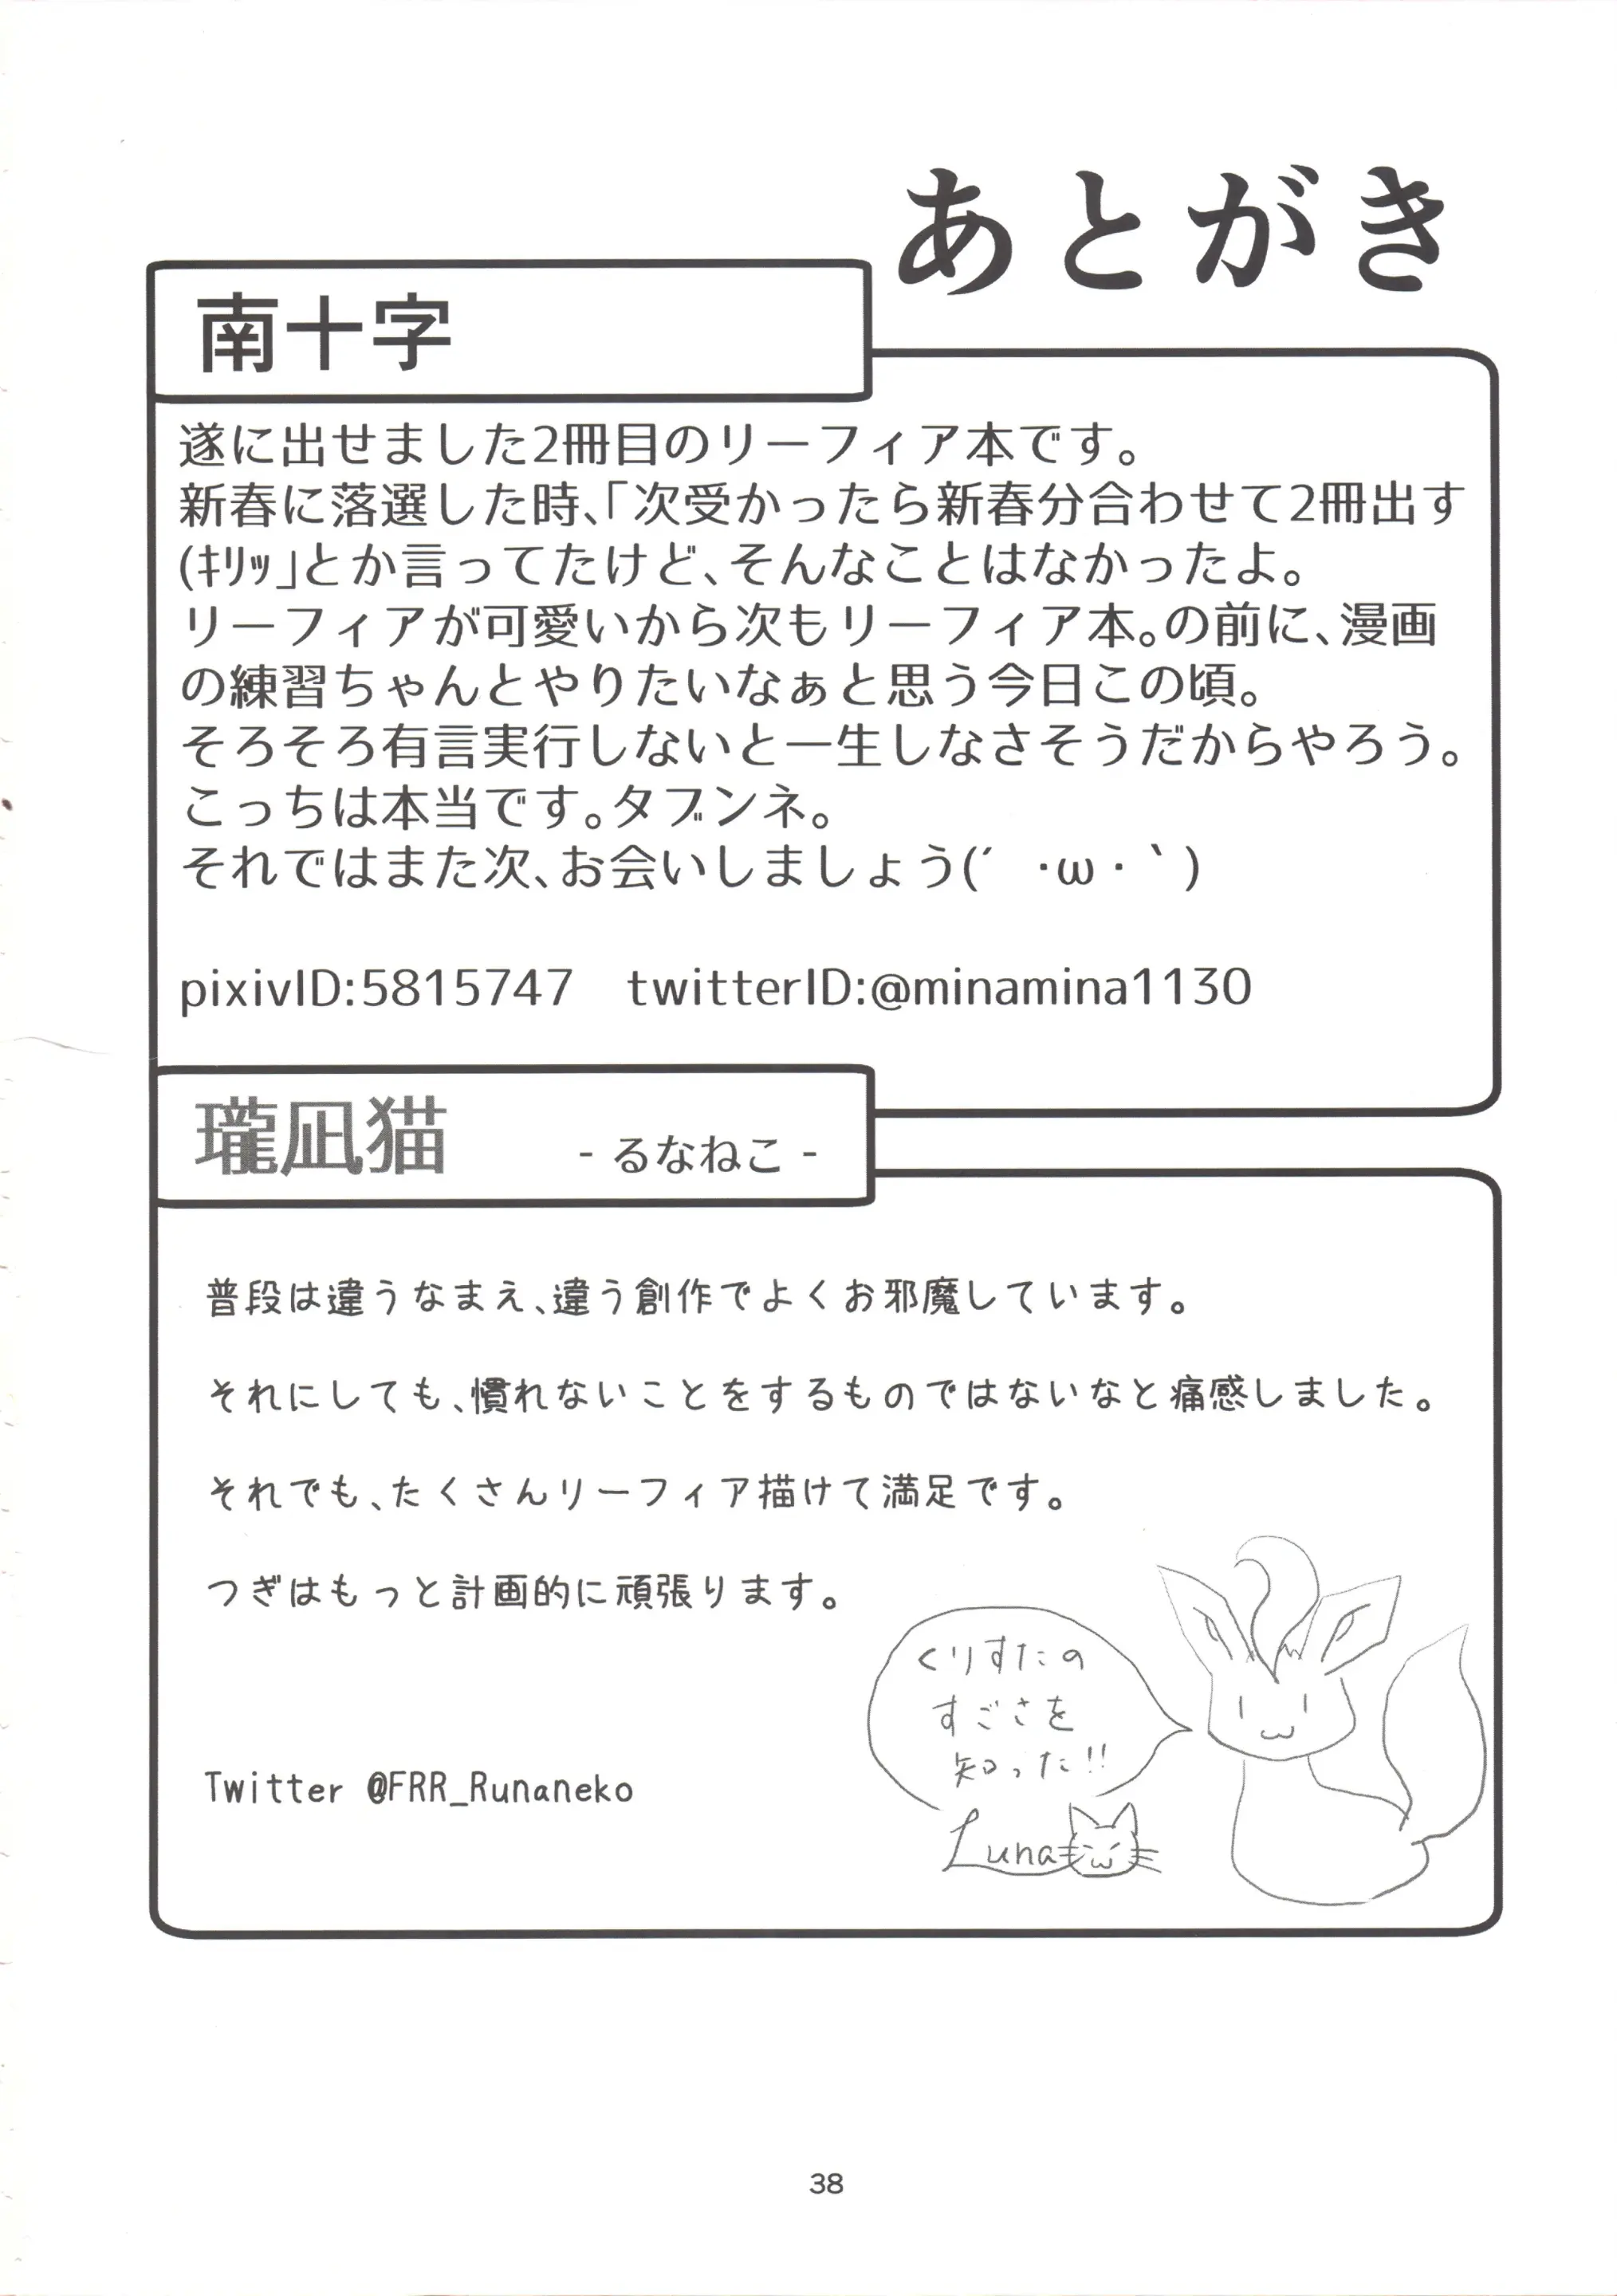 あとがき
南十字
遂に出せました2冊目のリーフィア本です。
新春に落選した時、「次受かったら新春分合わせて2冊出す
(ｷﾘｯ」とか言ってたけど、そんなことはなかったよ。
リーフィアが可愛いから次もリーフィア本。の前に、漫画
の練習ちゃんとやりたいなぁと思う今日この頃。
そろそろ有言実行しないと一生しなさそうだからやろう。
こっちは本当です。タブンネ。
それではまた次、お会いしましょう(´ ・ω・｀)
pixivID:5815747 twitterID:@minamina1130
瓏凪猫 - るなねこ -
普段は違うなまえ、違う創作でよくお邪魔しています。
それにしても、慣れないことをするものではないなと痛感しました。
それでも、たくさんリーフィア描けて満足です。
つぎはもっと計画的に頑張ります。
くりすたの
すごさを
知った!!
Luna
Twitter @FRR_Runaneko
38